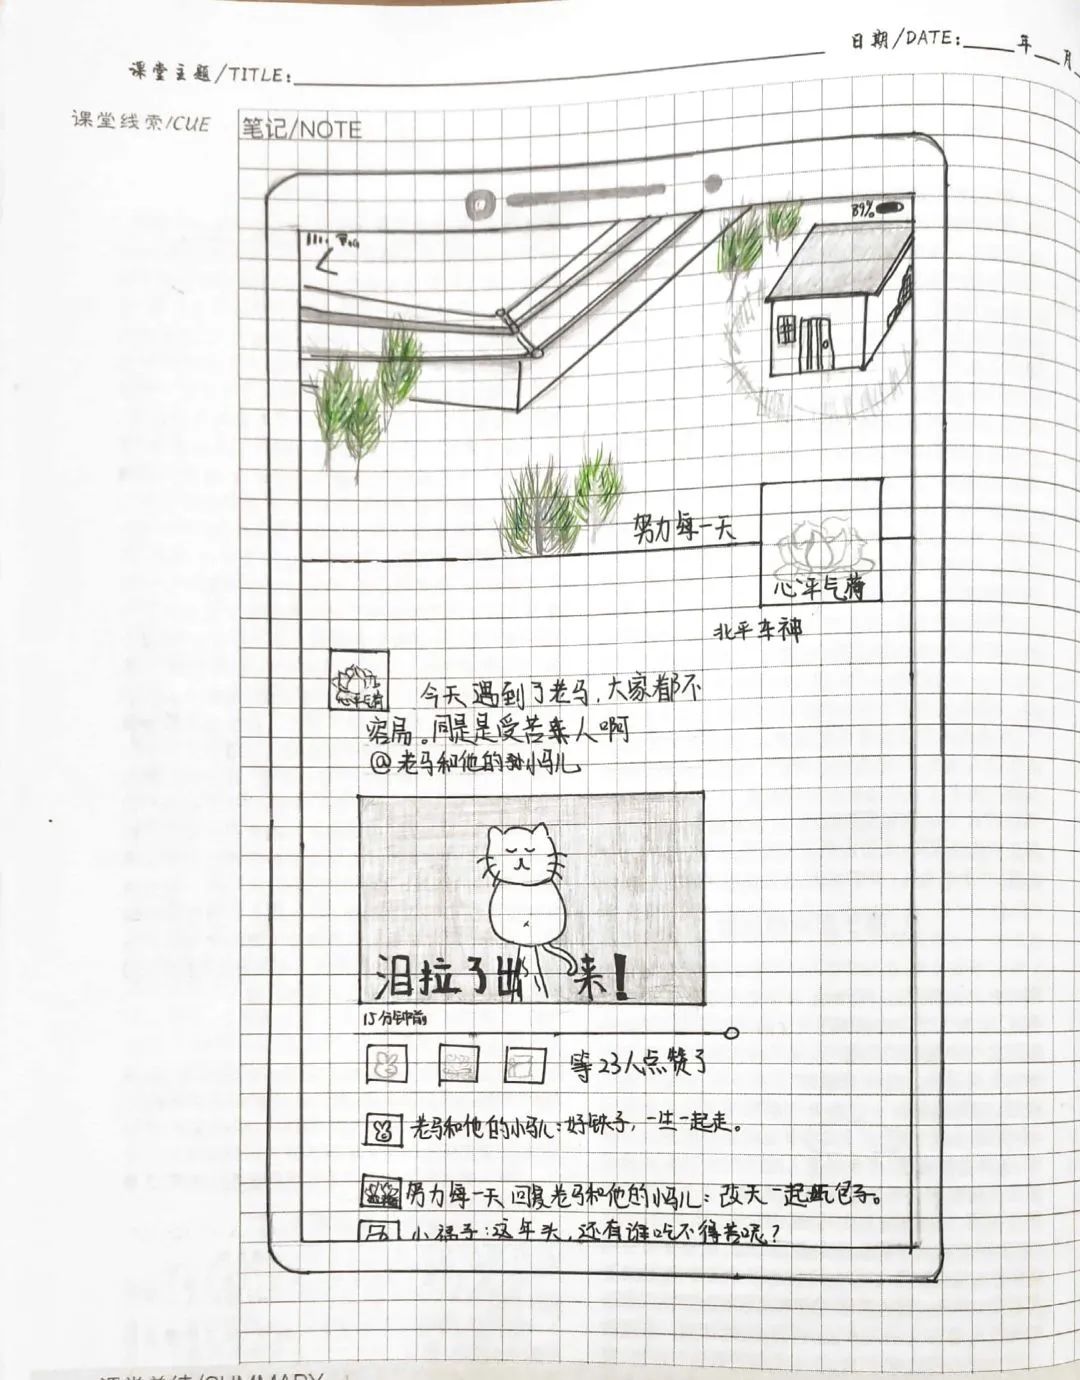 日期/DATE: 年 月
课堂主题/TITLE:
课堂线索/CUE
笔记/NOTE
89%
努力每一天
心平气荷
北平车神
心平气荷
今天遇到了老马,大家都不
容易。同是是受苦亲人啊
@老马和他的孙小马儿
泪拉了出来!
15分钟前
等23人点赞了
老马和他的小马儿:好铁子,一生一起走。
努力每一天回复老马和他的小马儿:改天一起吃包子。
小福子:这年头,还有谁吃不得苦呢?